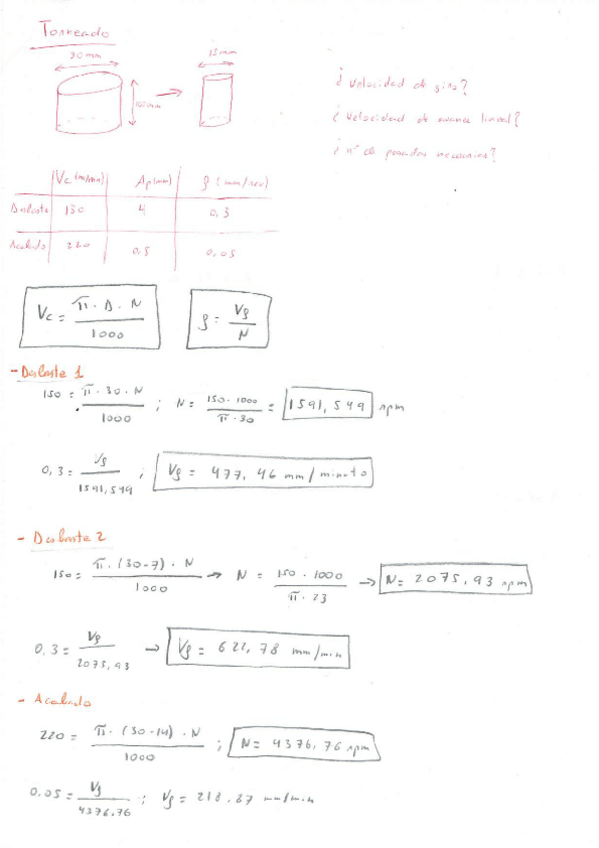 Torneado
30 mm
15 mm
100 mm
¿Velocidad de giro?
¿Velocidad de avance lineal?
¿nº de pasadas necesarias?
Vc (m/min) Ap (mm) f (mm/rev)
Desbaste 150 4 0,3
Acabado 220 0,5 0,05
Vc = π · D · N / 1000
f = Vf / N
- Desbaste 1
150 = π · 30 · N / 1000 ; N = 150 · 1000 / π · 30 = 1591,549 rpm
0,3 = Vf / 1591,549 ; Vf = 477,46 mm/minuto
- Desbaste 2
150 = π · (30-7) · N / 1000 → N = 150 · 1000 / π · 23 → N = 2075,93 rpm
0,3 = Vf / 2075,93 → Vf = 622,78 mm/min
- Acabado
220 = π · (30-14) · N / 1000 ; N = 4376,76 rpm
0,05 = Vf / 4376.76 ; Vf = 218,87 mm/min